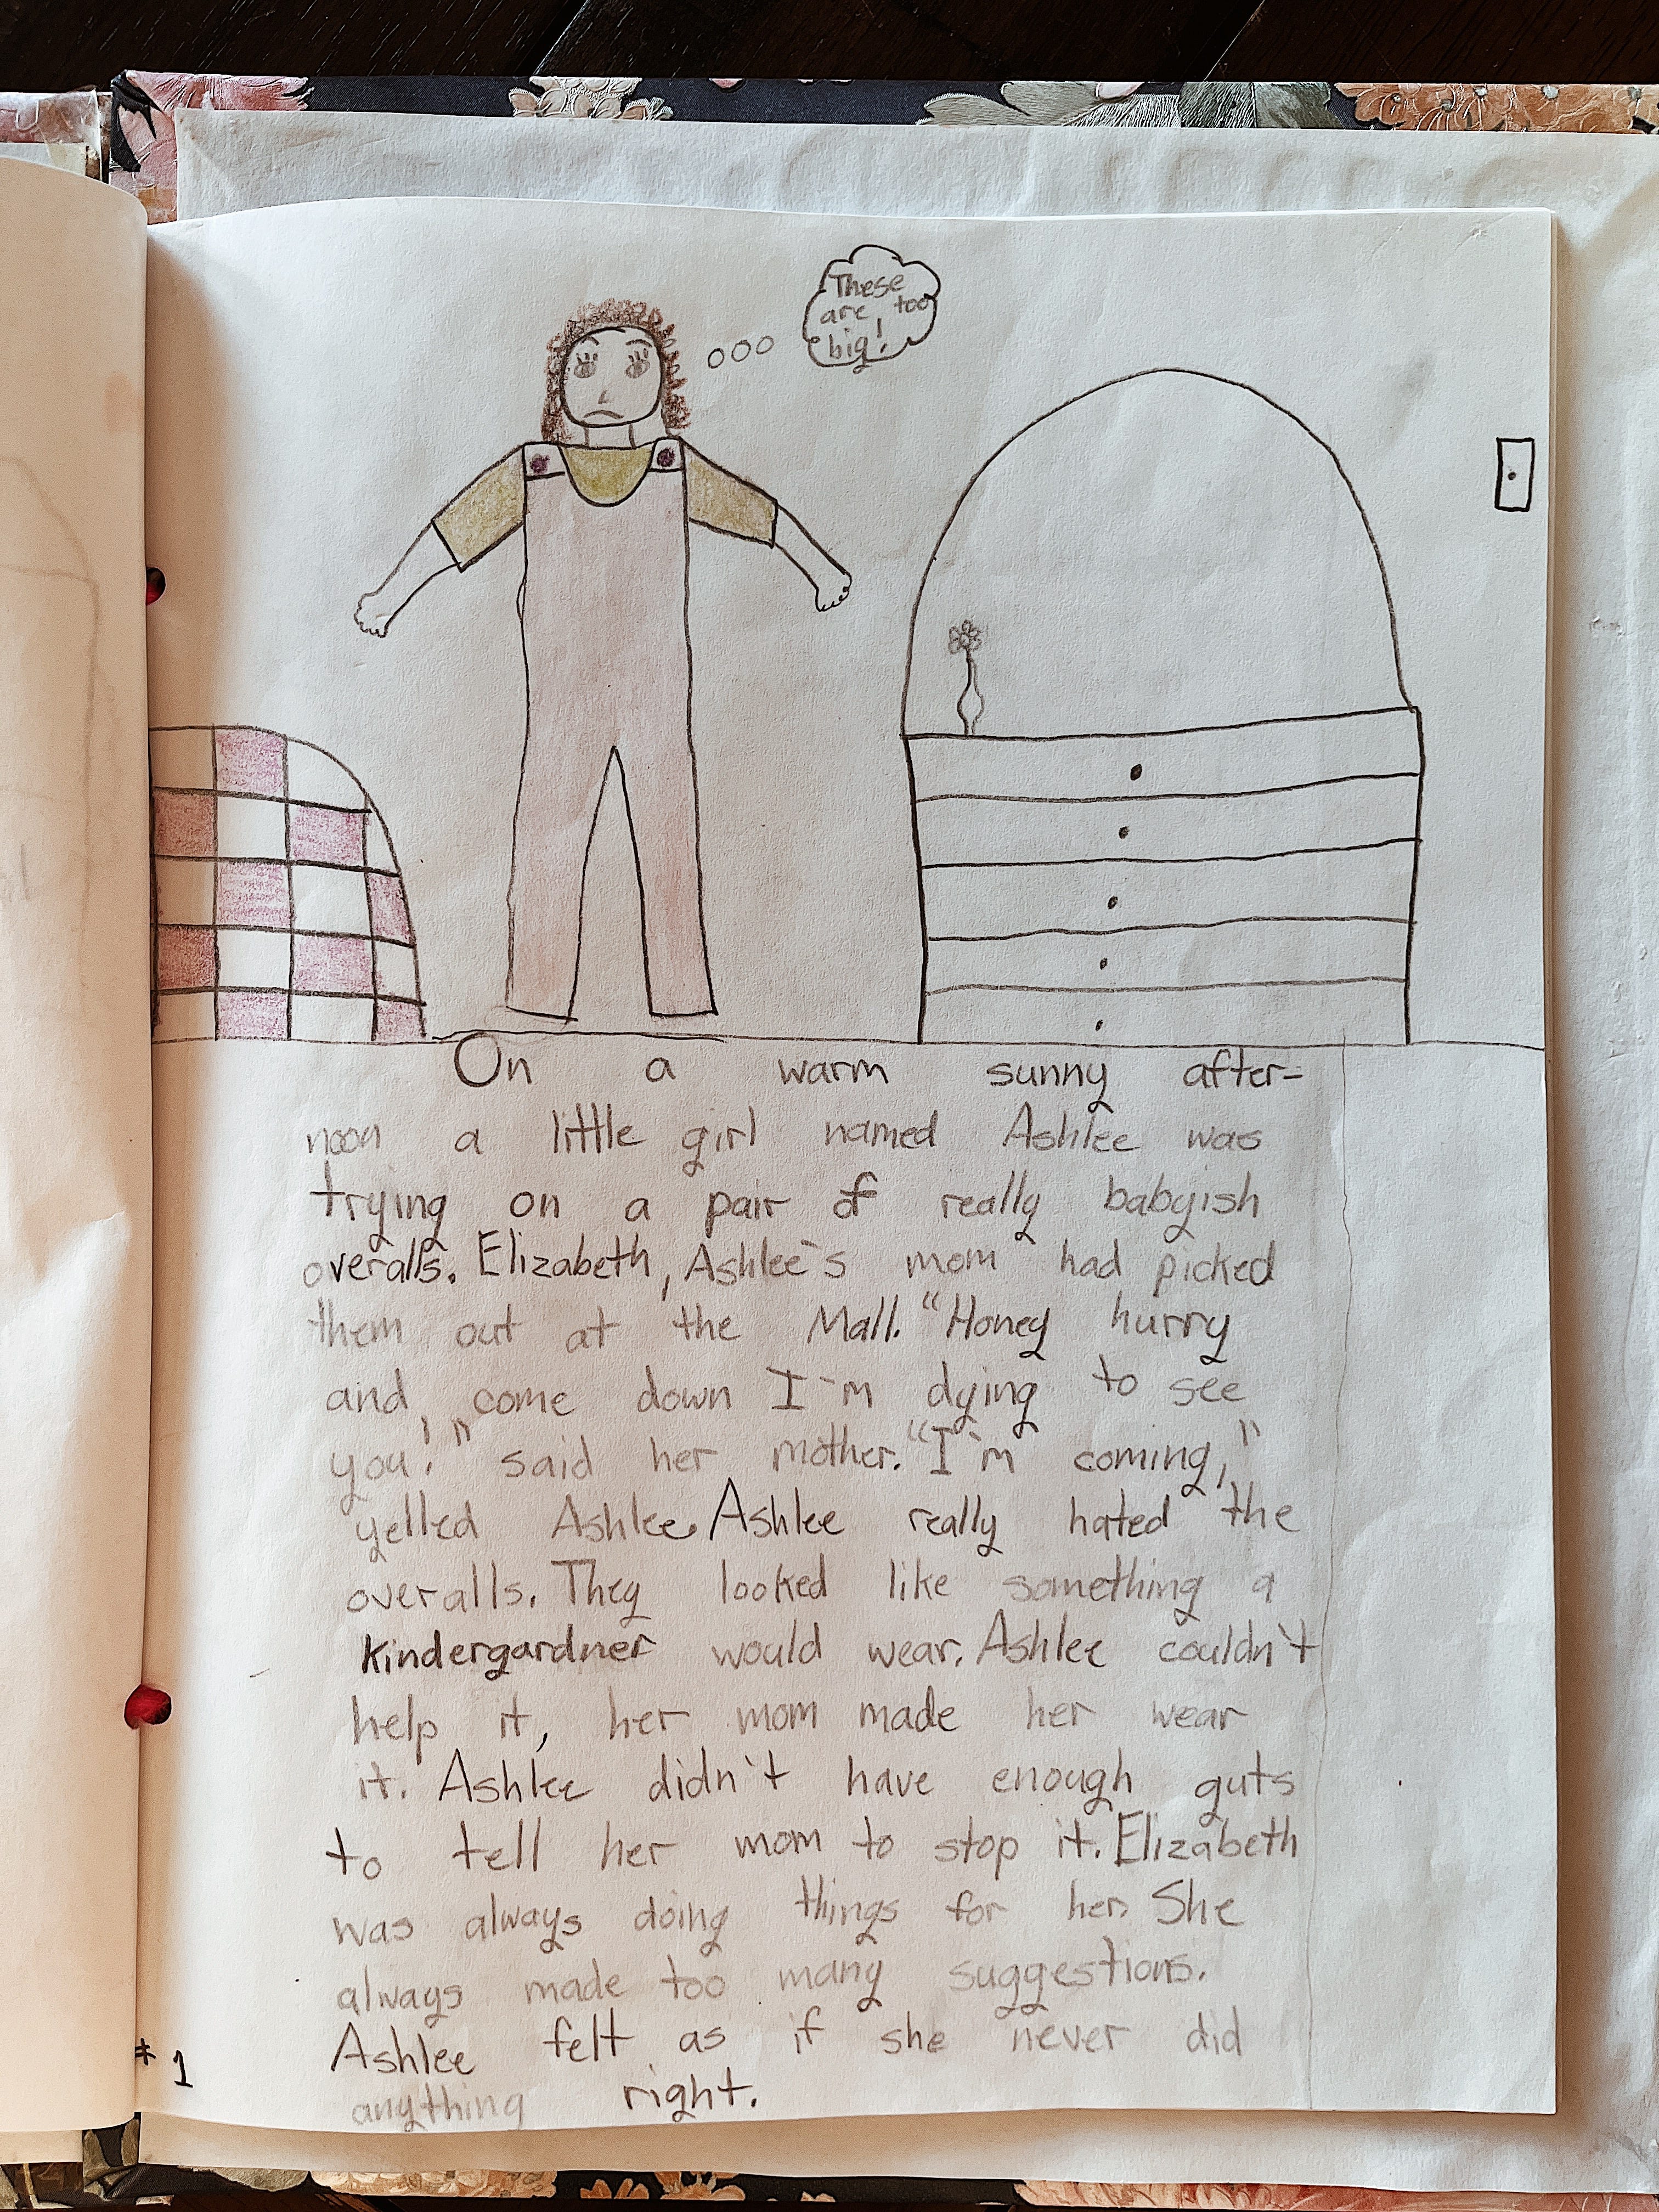 These
are too
big!
On a warm sunny after-
noon a little girl named Ashlee was
trying on a pair of really babyish
overalls. Elizabeth, Ashlee's mom had picked
them out at the Mall. "Honey hurry
and come down I'm dying to see
you!" said her mother. "I'm coming,"
yelled Ashlee. Ashlee really hated the
overalls. They looked like something a
kindergardner would wear. Ashlee couldn't
help it, her mom made her wear
it. Ashlee didn't have enough guts
to tell her mom to stop it. Elizabeth
was always doing things for her. She
always made too many suggestions.
Ashlee felt as if she never did
anything right.
#1